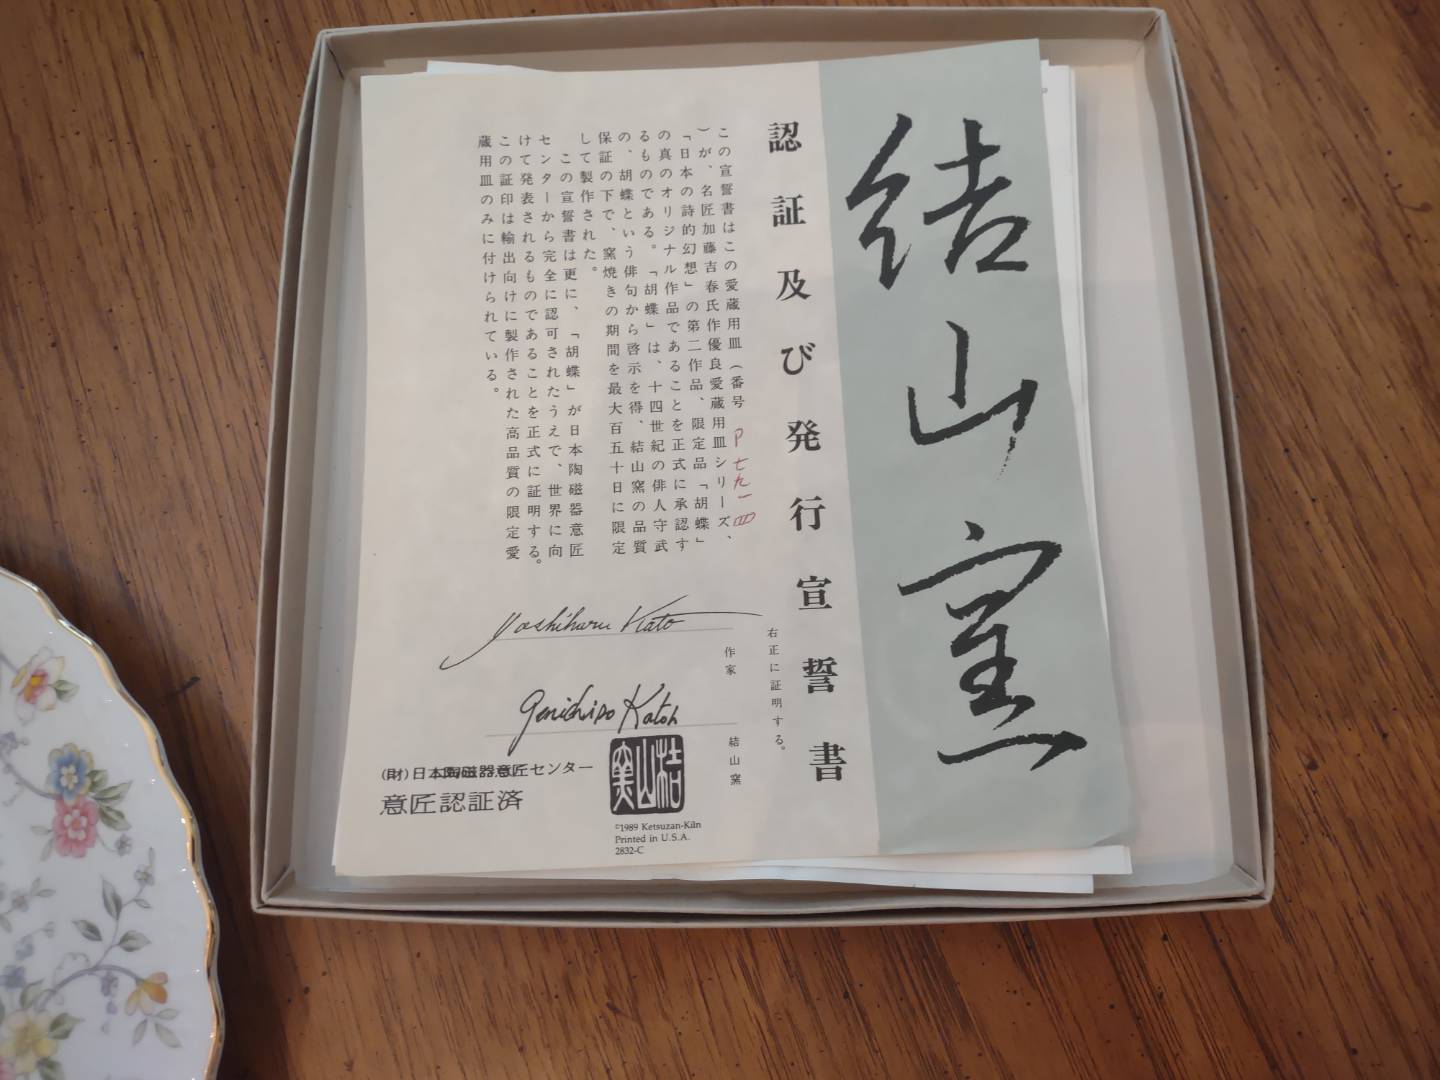 結山窯
認証及び発行宣誓書
この宣誓書はこの愛蔵用皿(番号 P七九一四
)が、名匠加藤吉春氏作優良愛蔵用皿シリーズ、
「日本の詩的幻想」の第二作品、限定品「胡蝶」
の真のオリジナル作品であることを正式に承認す
るものである。「胡蝶」は、十四世紀の俳人守武
の、胡蝶という俳句から啓示を得、結山窯の品質
保証の下で、窯焼きの期間を最大百五十日に限定
して製作された。
この宣誓書は更に、「胡蝶」が日本陶磁器意匠
センターから完全に認可されたうえで、世界に向
けて発表されるものであることを正式に証明する。
この証印は輸出向けに製作された高品質の限定愛
蔵用皿のみに付けられている。
右正に証明する。
Yoshiharu Kato
作家
Genichiro Katoh
結山窯
(財)日本陶磁器意匠センター
意匠認証済
結山窯
©1989 Ketsuzan-Kiln
Printed in U.S.A.
2832-C